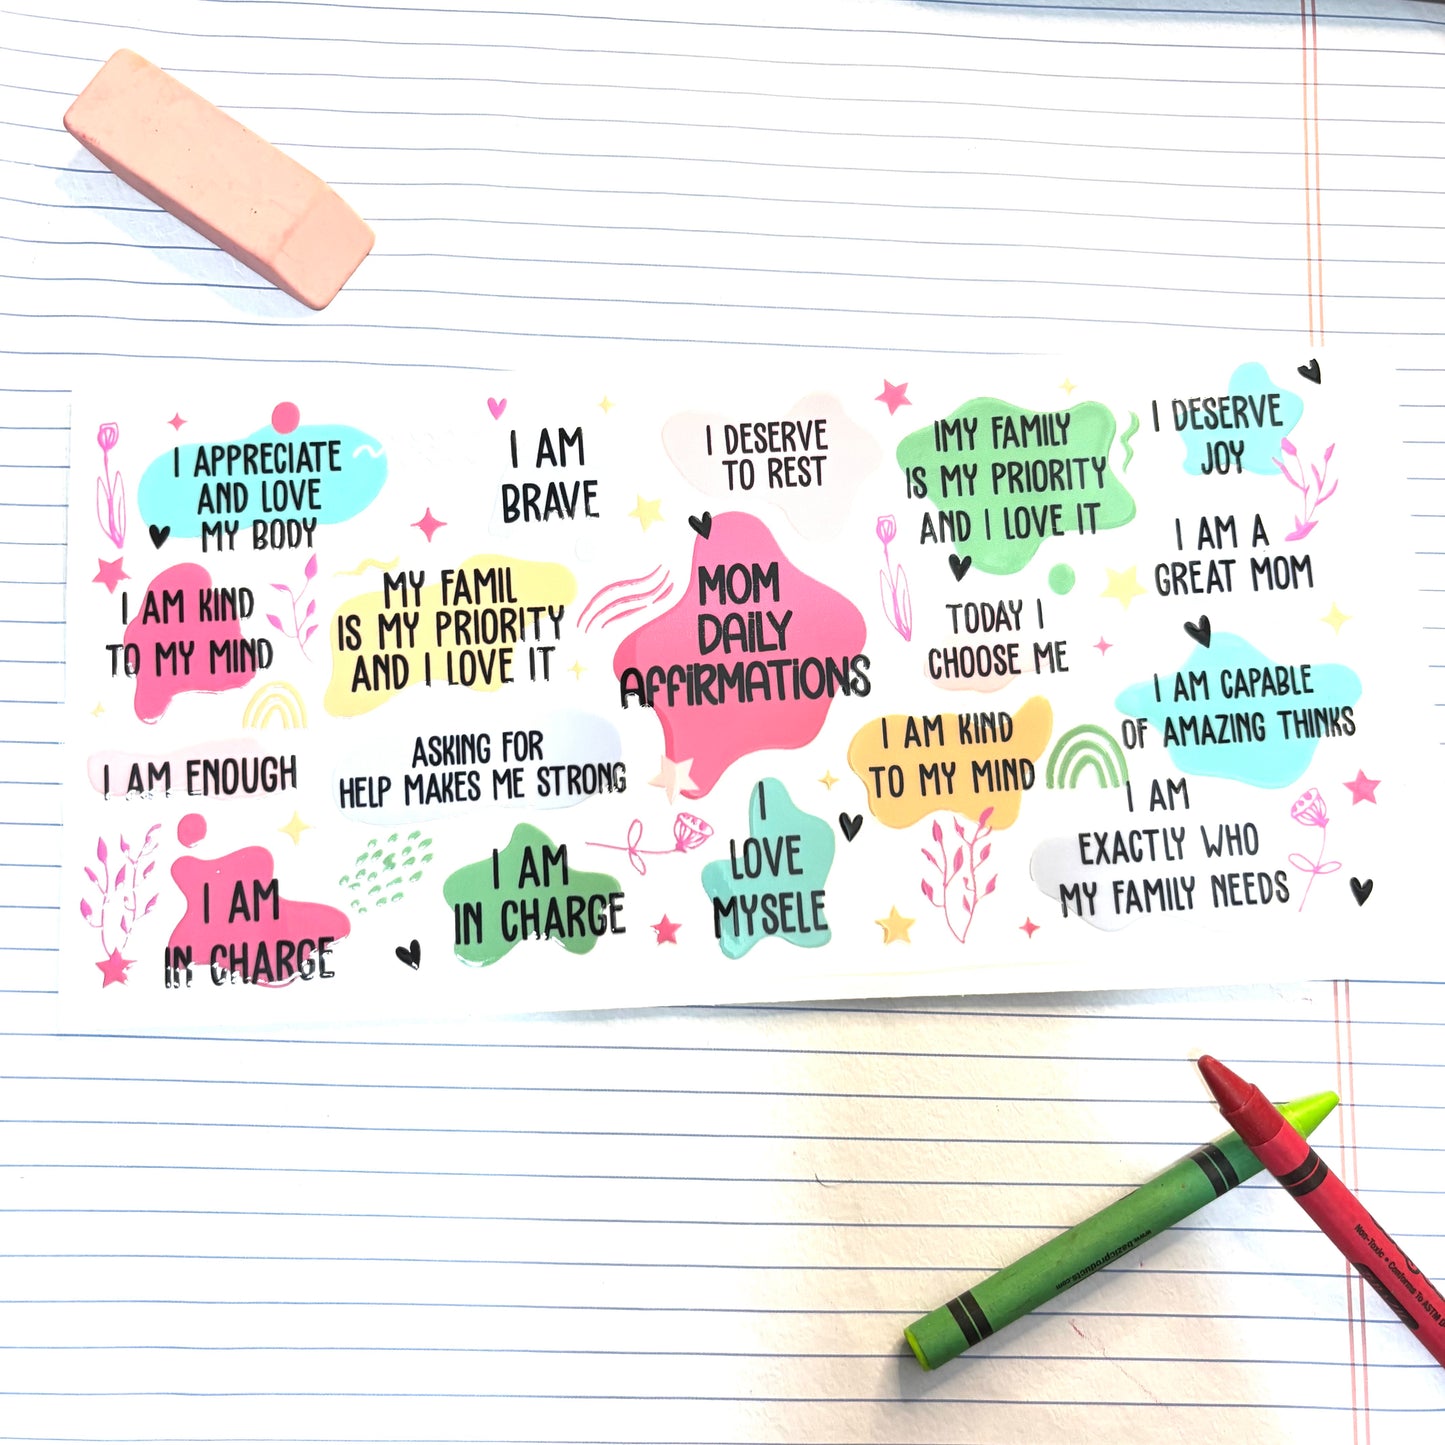 I APPRECIATE
AND LOVE
MY BODY
I AM
BRAVE
I DESERVE
TO REST
IMY FAMILY
IS MY PRIORITY
AND I LOVE IT
I DESERVE
JOY
I AM A
GREAT MOM
I AM KIND
TO MY MIND
MY FAMIL
IS MY PRIORITY
AND I LOVE IT
MOM
DAILY
AFFIRMATIONS
TODAY I
CHOOSE ME
I AM CAPABLE
OF AMAZING THINKS
I AM ENOUGH
ASKING FOR
HELP MAKES ME STRONG
I AM KIND
TO MY MIND
I AM
EXACTLY WHO
MY FAMILY NEEDS
I AM
IN CHARGE
I AM
IN CHARGE
I
LOVE
MYSELE
www.bazicproducts.com
Non-Toxic • Conforms To ASTM D